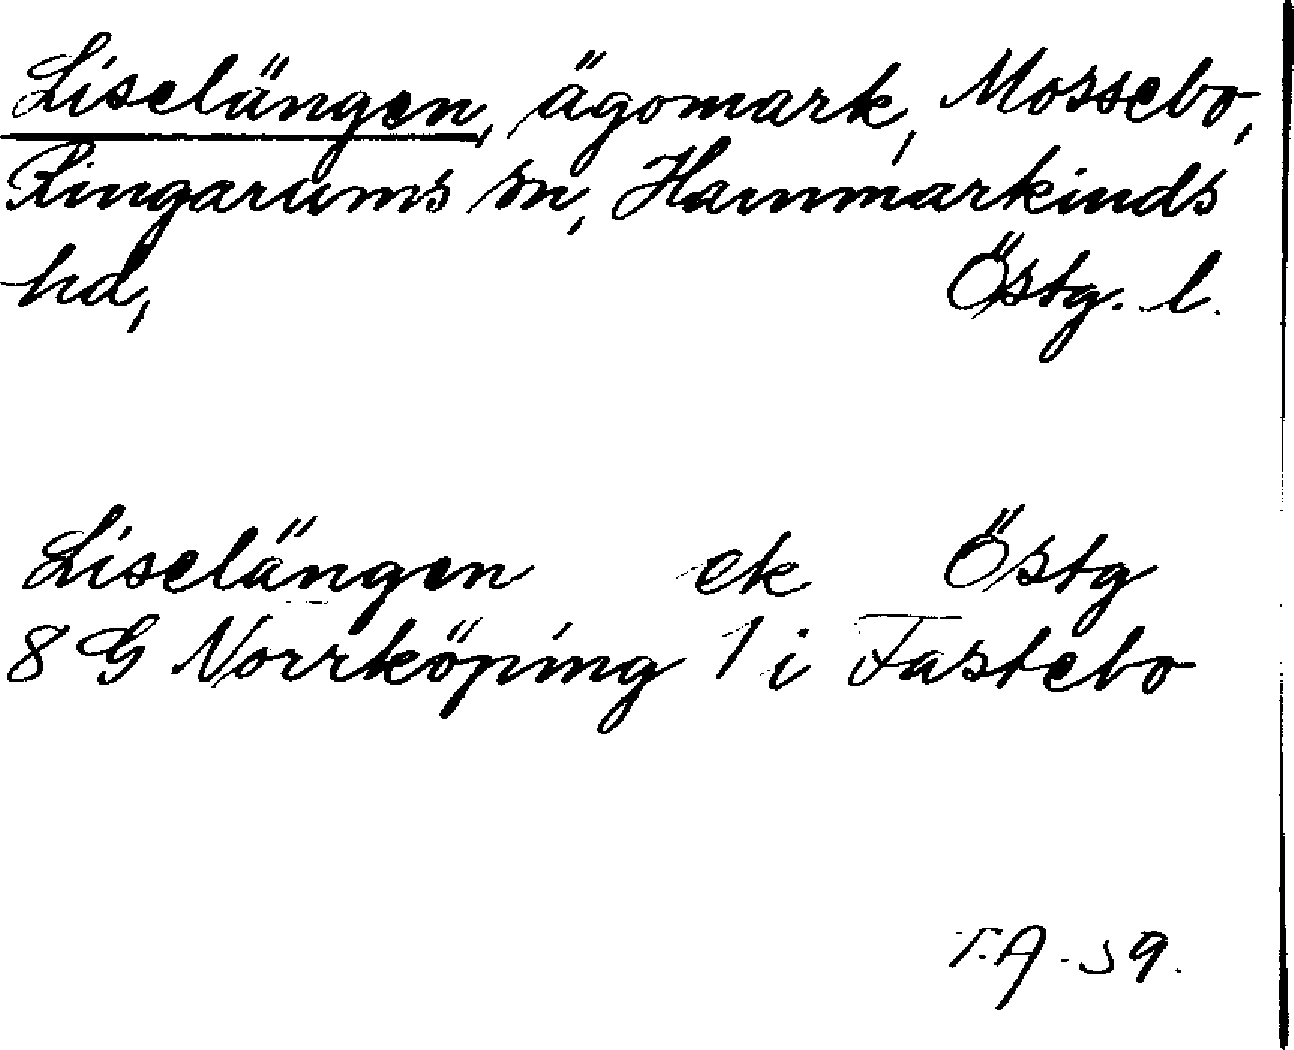 Liselängen, ägomark, Mossebo,
Ringarums sn, Hammarkinds
hd, Östg. l.
Liselängen ek Östg
8 G Norrköping 1 i Fastebo
T.A. 59.